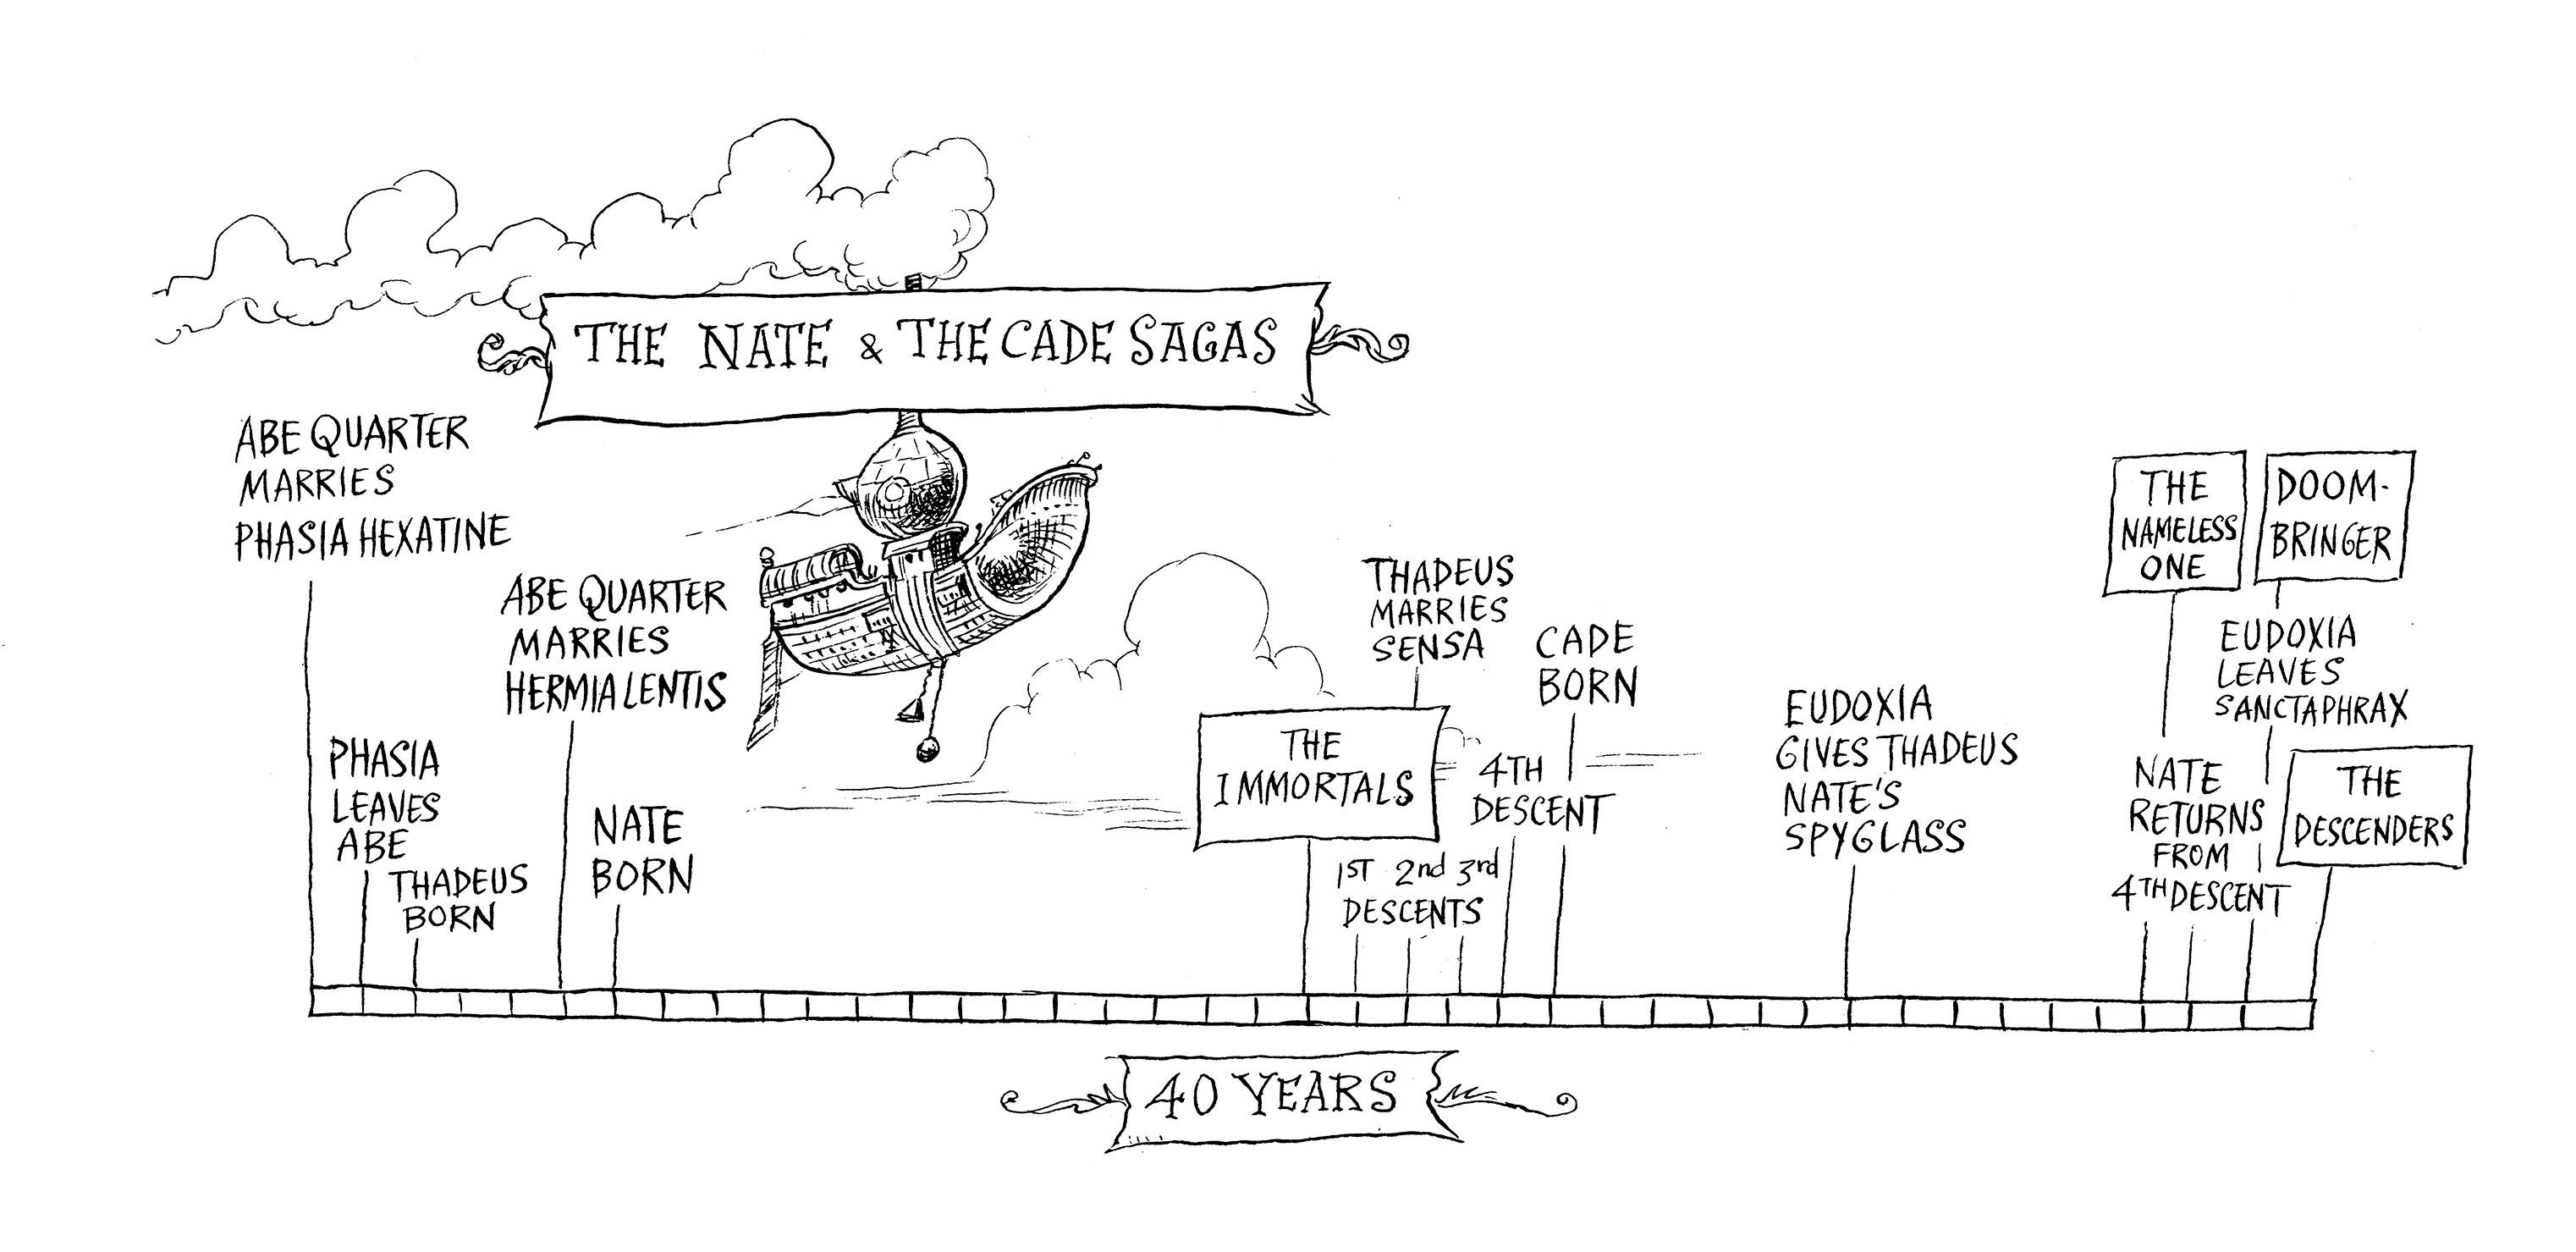 THE NATE & THE CADE SAGAS
ABE QUARTER
MARRIES
PHASIA HEXATINE
PHASIA
LEAVES
ABE
THADEUS
BORN
ABE QUARTER
MARRIES
HERMIA LENTIS
NATE
BORN
THE
IMMORTALS
1ST 2nd 3rd
DESCENTS
THADEUS
MARRIES
SENSA
4TH
DESCENT
CADE
BORN
EUDOXIA
GIVES THADEUS
NATE'S
SPYGLASS
THE
NAMELESS
ONE
NATE
RETURNS
FROM
4TH DESCENT
DOOM-
BRINGER
EUDOXIA
LEAVES
SANCTAPHRAX
THE
DESCENDERS
40 YEARS